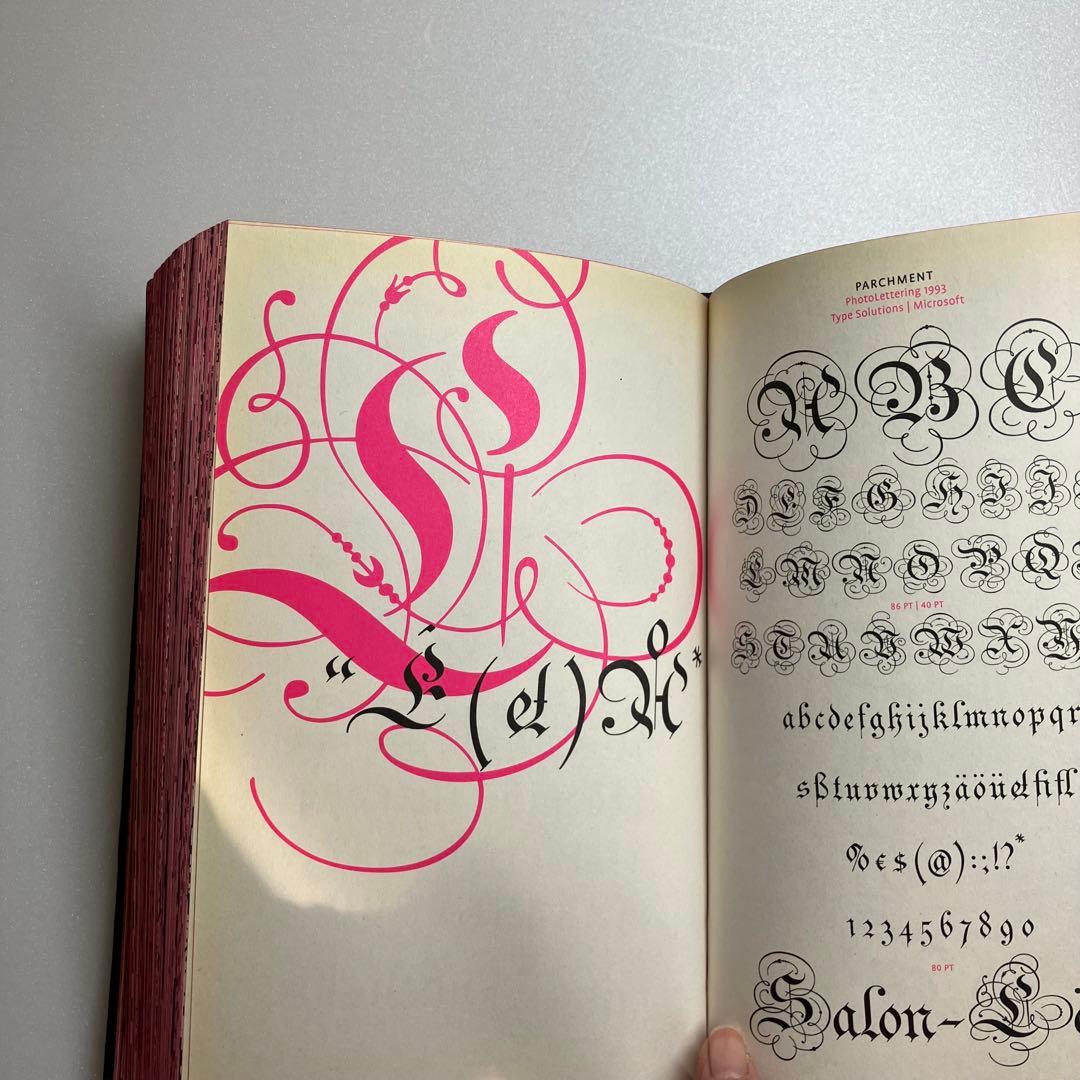 “Ė(et)Å*
PARCHMENT
PhotoLettering 1993
Type Solutions | Microsoft
A B C
D E F G H I J
L M N O P Q
86 PT | 40 PT
S T U V W X Y
abcdefghijklmnopqr
sßtuvwxyzäöü fifl
%€$(@):;!?*
1234567890
80 PT